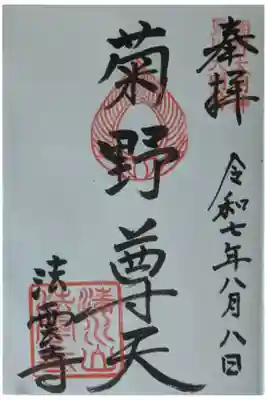 奉拝
令和七年八月八日
菊野尊天
法雲寺